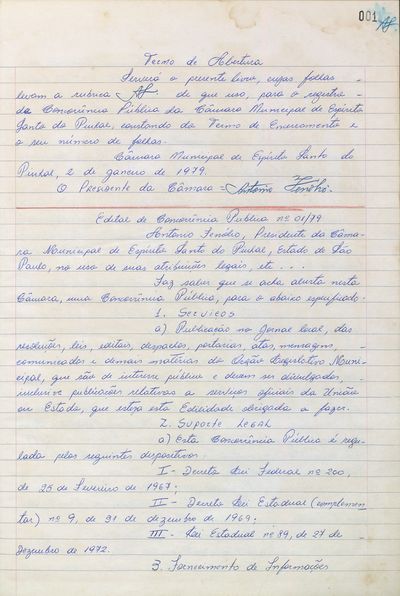 001
Termo de Abertura
Servirá o presente livro, cujas folhas
levam a rubrica de que uso, para o registro
da Concorrência Pública da Câmara Municipal de Espírito
Santo do Pinhal, constando do Termo de Encerramento e
o seu número de folhas.
Câmara Municipal de Espírito Santo do
Pinhal, 2 de janeiro de 1979.
O Presidente da Câmara = Antonio Fenólio.
Edital de Concorrência Pública nº 01/79
Antônio Fenólio, Presidente da Câma-
ra Municipal de Espírito Santo do Pinhal, Estado de São
Paulo, no uso de suas atribuições legais, etc...
Faz saber que se acha aberta nesta
Câmara, uma Concorrência Pública, para o abaixo especificado:
1. Serviços
a) Publicação no Jornal local, das
resoluções, leis, editais, despachos, portarias, atas, mensagens,
comunicados e demais matérias do Órgão Legislativo Muni-
cipal, que são de interesse público e devem ser divulgados,
inclusive publicações relativas a serviços oficiais da União
ou Estado, que esteja esta Edilidade obrigada a fazer.
2. Suporte Legal
a) Esta Concorrência Pública é regu-
lada pelos seguintes dispositivos:
I - Decreto Lei Federal nº 200,
de 25 de Fevereiro de 1967;
II - Decreto Lei Estadual (complemen-
tar) nº 9, de 31 de dezembro de 1969;
III - Lei Estadual nº 89, de 27 de
Dezembro de 1972.
3. Fornecimento de Informações